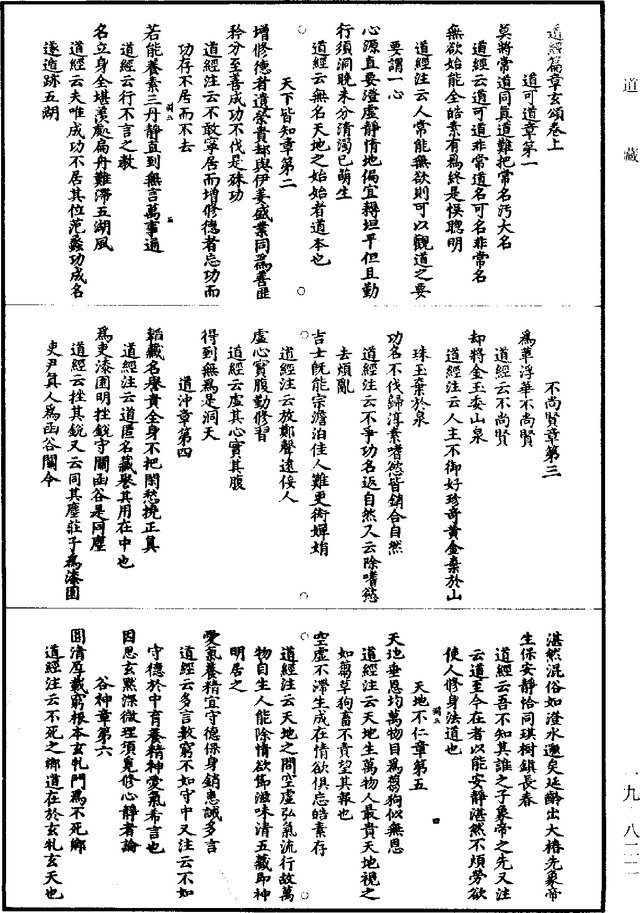 道藏
道經篇章玄頌卷上
道可道章第一
莫將常道同真道難把常名汚大名
道經云道可道非常道名可名非常名
無欲始能全皓素有爲終是悮聰明
道經注云人常能無欲則可以觀道之要
要謂一心
心源直要澄虛靜情地偏宜耨坦平但且勤
行須洞曉未分清濁已萌生
道經云無名天地之始始者道本也
天下皆知章第二
增修德者遺榮貴却與伊姜盛業同爲善匪
矜分至善成功不伐是殊功
道經注云不敢寧居而增修德者忘功而
功存不居而不去
若能養素三丹靜直到無言萬事通
道經云行不言之教
名立身全堪羙處扁舟難滯五湖風
道經云夫唯成功不居其位范蠡功成名
遂遁跡五湖
不尚賢章第三
爲華浮華不尚賢
道經云不尚賢
却將金玉委山泉
道經注云人主不御好珍竒黃金棄於山
珠玉棄於泉
功名不伐歸淳素嗜慾皆銷合自然
道經注云不爭功名返自然又云除嗜慾
去煩亂
吉士旣能宗澹泊佳人難更衒嬋娟
道經注云放鄭聲遠佞人
虛心實腹勤修習
道經云虛其心實其腹
得到無爲是洞天
道沖章第四
韜藏名譽貴全身不把閑愁撓正真
道經注云道匿名藏譽其用在中也
爲吏漆園明挫銳守關函谷是同塵
道經云挫其銳又云同其塵莊子爲漆園
吏尹真人爲函谷關令
湛然混俗如澄水邈矣延齡出大椿先象帝
生保安靜恰同琪樹鎮長春
道經云吾不知其誰之子象帝之先又注
云道至今在者以能安靜湛然不煩勞欲
使人修身法道也
天地不仁章第五
天地垂恩均萬物目爲芻狗似無恩
道經注云天地生萬物人最貴天地視之
如芻草狗畜不責望其報也
空虛不滯生成在情欲俱忘皓素存
道經注云天地之間空虛弘氣流行故萬
物自生人能除情欲節滋味清五藏即神
明居之
愛氣養精宜守德保身銷恚誡多言
道經云多言數窮不如守中又注云不如
守德於中育養精神愛氣希言也
因思玄黙深微理須覓修心靜者論
谷神章第六
圓清厚載窮根本玄牝門爲不死鄉
道經注云不死之鄉道在於玄牝玄天也
一九·八二二